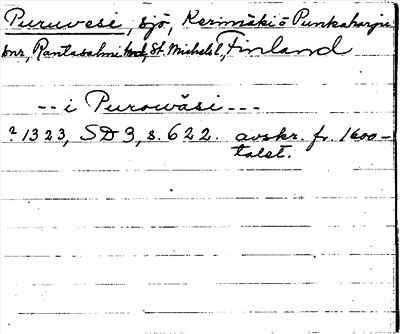 Puruvesi, sjö, Kerimäki o Punkaharju
snr, Rantasalmi hd, St. Michels l, Finland
-- i Purowäsi ---
? 1323, SD 3, s. 622. avskr. fr. 1600-
talet.